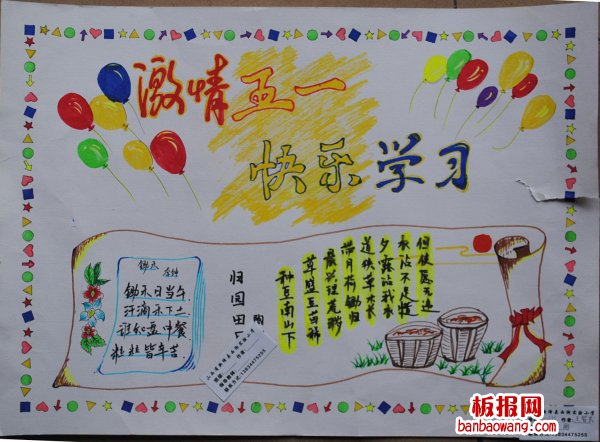 激情五一
快乐学习
锄禾
李绅
锄禾日当午
汗滴禾下土
谁知盘中餐
粒粒皆辛苦
归园田
陶
种豆南山下
草盛豆苗稀
晨兴理荒秽
带月荷锄归
道狭草木长
夕露沾我衣
衣沾不足惜
但使愿无违
板报网
banbaowang.com